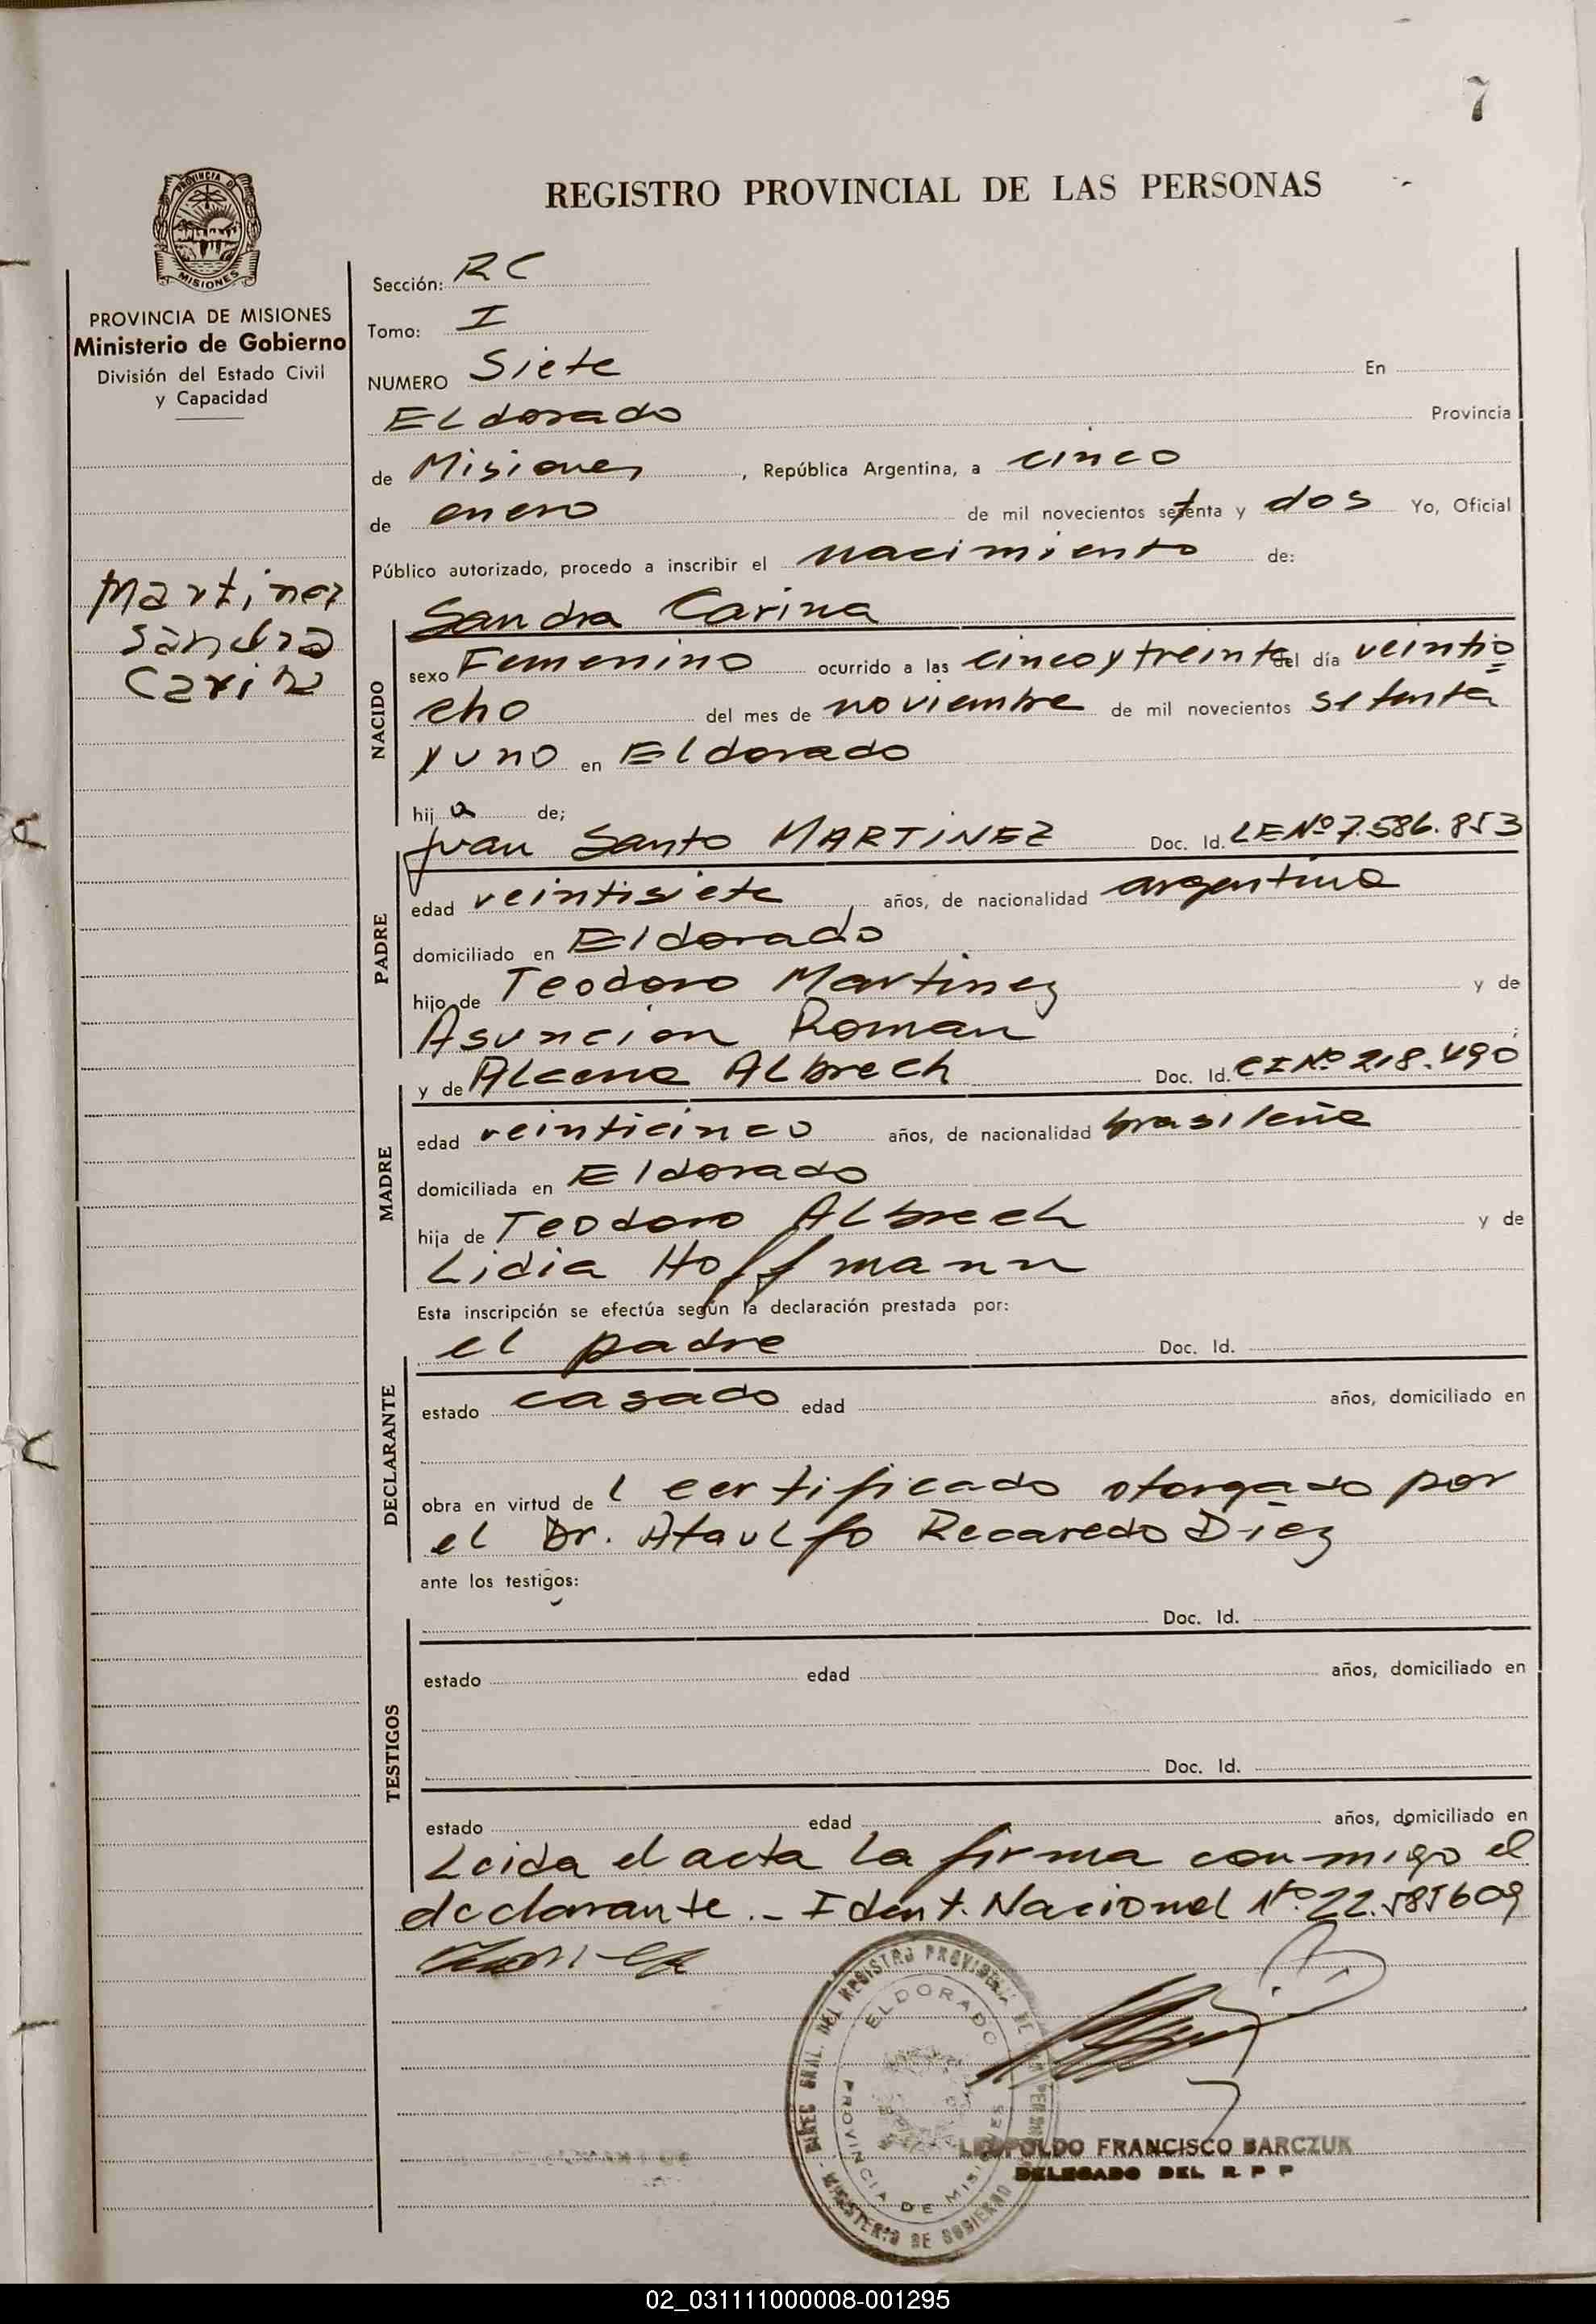 7
REGISTRO PROVINCIAL DE LAS PERSONAS
PROVINCIA DE MISIONES
PROVINCIA DE MISIONES
Ministerio de Gobierno
División del Estado Civil
y Capacidad
Martinez
Sandra
Carina
Sección: RC
Tomo: I
NUMERO Siete En
Eldorado Provincia
de Misiones, República Argentina, a cinco
de enero de mil novecientos setenta y dos Yo, Oficial
Público autorizado, procedo a inscribir el nacimiento de:
Sandra Carina
NACIDO
sexo Femenino ocurrido a las cinco y treinta del día veintio
cho del mes de noviembre de mil novecientos setenta
y uno en Eldorado
hij a de;
Juan Santo MARTINEZ Doc. Id. LE Nº 7.586.853
PADRE
edad veintisiete años, de nacionalidad argentina
domiciliado en Eldorado
hijo de Teodoro Martinez y de
Asuncion Roman;
y de Alcena Albrech Doc. Id. CI Nº 218.490
MADRE
edad veinticinco años, de nacionalidad brasileña
domiciliada en Eldorado
hija de Teodoro Albrech y de
Lidia Hoffmann
Esta inscripción se efectúa según la declaración prestada por:
el padre Doc. Id.
DECLARANTE
estado casado edad años, domiciliado en
obra en virtud de l certificado otorgado por
el Dr. Ataulfo Recaredo Diez
ante los testigos:
Doc. Id.
TESTIGOS
estado edad años, domiciliado en
Doc. Id.
estado edad años, domiciliado en
Leida el acta la firma conmigo el
declarante.- Ident. Nacional Nº 22.585609
DIREC GRAL. DEL REGISTRO PROVINCIAL DE LAS PERSONAS
ELDORADO
PROVINCIA DE MISIONES
MINISTERIO DE GOBIERNO
LEOPOLDO FRANCISCO BARCZUK
DELEGADO DEL R P P
02_031111000008-001295